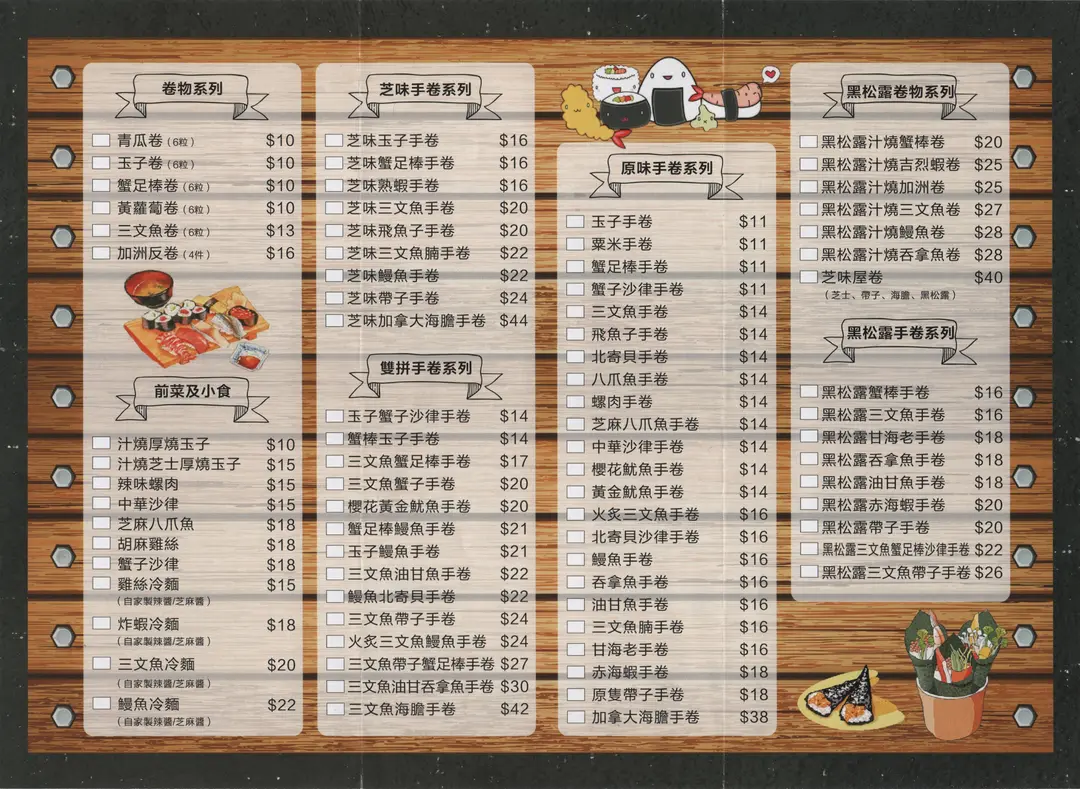 卷物系列
青瓜卷(6粒) $10
玉子卷(6粒) $10
蟹足棒卷(6粒) $10
黃蘿蔔卷(6粒) $10
三文魚卷(6粒) $13
加洲反卷(4件) $16
前菜及小食
汁燒厚燒玉子 $10
汁燒芝士厚燒玉子 $15
辣味螺肉 $15
中華沙律 $15
芝麻八爪魚 $18
胡麻雞絲 $18
蟹子沙律 $18
雞絲冷麵 $15
(自家製辣醬/芝麻醬)
炸蝦冷麵 $18
(自家製辣醬/芝麻醬)
三文魚冷麵 $20
(自家製辣醬/芝麻醬)
鰻魚冷麵 $22
(自家製辣醬/芝麻醬)
芝味手卷系列
芝味玉子手卷 $16
芝味蟹足棒手卷 $16
芝味熟蝦手卷 $16
芝味三文魚手卷 $20
芝味飛魚子手卷 $20
芝味三文魚腩手卷 $22
芝味鰻魚手卷 $22
芝味帶子手卷 $24
芝味加拿大海膽手卷 $44
雙拼手卷系列
玉子蟹子沙律手卷 $14
蟹棒玉子手卷 $14
三文魚蟹足棒手卷 $17
三文魚蟹子手卷 $20
櫻花黃金魷魚手卷 $20
蟹足棒鰻魚手卷 $21
玉子鰻魚手卷 $21
三文魚油甘魚手卷 $22
鰻魚北寄貝手卷 $22
三文魚帶子手卷 $24
火炙三文魚鰻魚手卷 $24
三文魚帶子蟹足棒手卷 $27
三文魚油甘吞拿魚手卷 $30
三文魚海膽手卷 $42
原味手卷系列
玉子手卷 $11
粟米手卷 $11
蟹足棒手卷 $11
蟹子沙律手卷 $11
三文魚手卷 $14
飛魚子手卷 $14
北寄貝手卷 $14
八爪魚手卷 $14
螺肉手卷 $14
芝麻八爪魚手卷 $14
中華沙律手卷 $14
櫻花魷魚手卷 $14
黃金魷魚手卷 $14
火炙三文魚手卷 $16
北寄貝沙律手卷 $16
鰻魚手卷 $16
吞拿魚手卷 $16
油甘魚手卷 $16
三文魚腩手卷 $16
甘海老手卷 $16
赤海蝦手卷 $18
原隻帶子手卷 $18
加拿大海膽手卷 $38
黑松露卷物系列
黑松露汁燒蟹棒卷 $20
黑松露汁燒吉烈蝦卷 $25
黑松露汁燒加洲卷 $25
黑松露汁燒三文魚卷 $27
黑松露汁燒鰻魚卷 $28
黑松露汁燒吞拿魚卷 $28
芝味屋卷 $40
(芝士、帶子、海膽、黑松露)
黑松露手卷系列
黑松露蟹棒手卷 $16
黑松露三文魚手卷 $16
黑松露甘海老手卷 $18
黑松露吞拿魚手卷 $18
黑松露油甘魚手卷 $18
黑松露赤海蝦手卷 $20
黑松露帶子手卷 $20
黑松露三文魚蟹足棒沙律手卷 $22
黑松露三文魚帶子手卷 $26